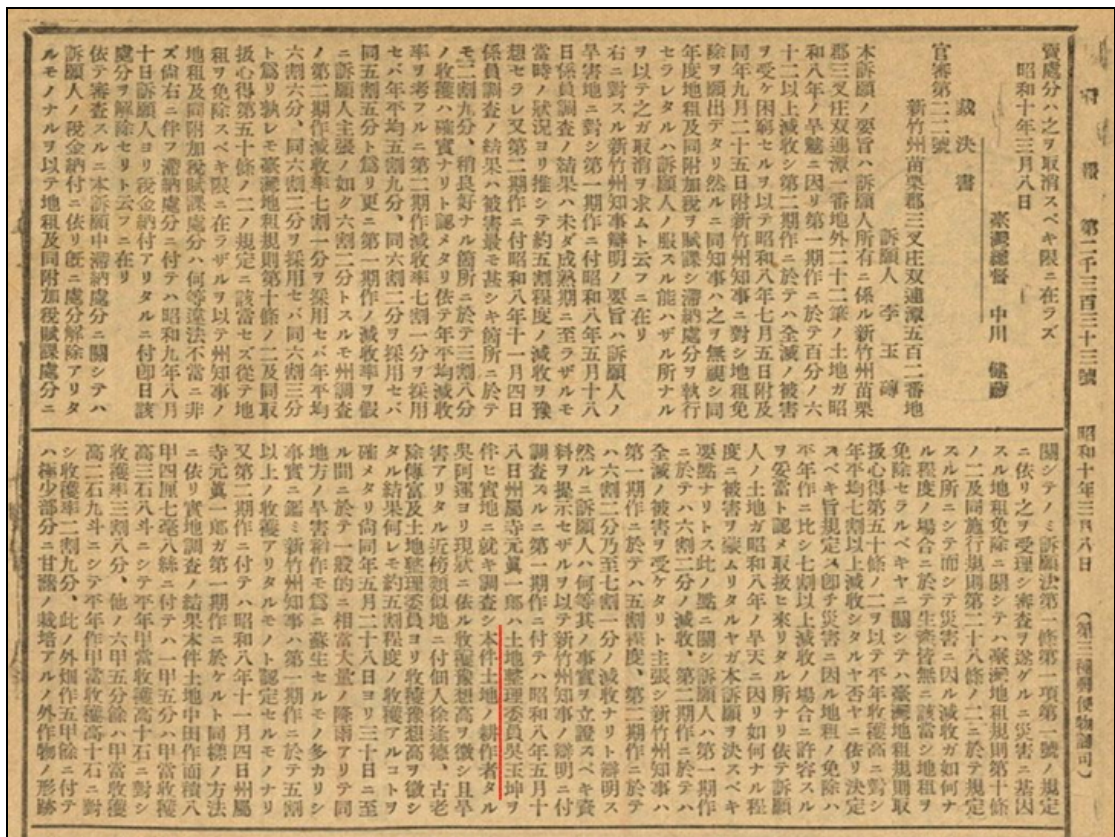 府報 第二千三百三十三號 昭和十年三月八日 (第三種郵便物認可)
賣處分ハ之ヲ取消スベキ限ニ在ラズ
昭和十年三月八日
臺灣總督 中川 健藏
裁決書
官審第二二號
新竹州苗栗郡三叉庄双連潭五百二番地
訴願人 李玉
本訴願ノ要旨ハ訴願人所有ニ係ル新竹州苗栗
郡三叉庄双連潭一番地外二十二筆ノ土地ガ昭
和八年ノ旱魃ニ因リ第一期作ニ於テ百分ノ六
十二以上減收シ第二期作ニ於テハ全滅ノ被害
ヲ受ケ困窮セルヲ以テ昭和八年七月五日附及
同年九月二十五日附新竹州知事ニ對シ地租免
除ヲ願出デタリ然ルニ同知事ハ之ヲ無視シ同
年度地租及同附加稅ヲ賦課シ滯納處分ヲ執行
セラレタルハ訴願人ノ服スル能ハザル所ナル
ヲ以テ之ガ取消ヲ求ムト云フニ在リ
右ニ對スル新竹州知事辯明ノ要旨ハ訴願人ノ
旱害地ニ對シ第一期作ニ付昭和八年五月十八
日係員調査ノ結果ハ未ダ成熟期ニ至ラザルモ
當時ノ狀況ヨリ推シテ約五割程度ノ減收ヲ豫
想セラレ又第二期作ニ付昭和八年十一月四日
係員調査ノ結果ハ被害最モ甚シキ箇所ニ於テ
モ二割九分、稍良好ナル箇所ニ於テ三割八分
ノ收穫ハ確實ナリト認メタリ依テ年平均減收
率ヲ考フルニ第二期作減收率七割一分ヲ採用
セバ年平均五割九分、同六割二分ヲ採用セバ
同五割五分ト爲リ更ニ第一期作ノ減收率ヲ假
ニ訴願人主張ノ如ク六割二分トスルモ州調査
ノ第二期作減收率七割一分ヲ採用セバ年平均
六割六分、同六割二分ヲ採用セバ同六割三分
ト爲リ孰レモ臺灣地租規則第十條ノ二及同取
扱心得第五十條ノ二ノ規定ニ該當セズ從テ地
租ヲ免除スベキ限ニ在ラザルヲ以テ州知事ノ
地租及同附加稅賦課處分ハ何等違法不當ニ非
ズ尙右ニ伴フ滯納處分ニ付テハ昭和九年八月
十日訴願人ヨリ稅金納付アリタルニ付卽日該
處分ヲ解除セリト云フニ在リ
依テ審査スルニ本訴願中滯納處分ニ關シテハ
訴願人ノ稅金納付ニ依リ旣ニ處分解除アリタ
ルモノナルヲ以テ地租及同附加稅賦課處分ニ
關シテノミ訴願法第一條第一項第一號ノ規定
ニ依リ之ヲ受理シ審査ヲ遂グルニ災害ニ基因
スル地租免除ニ關シテハ臺灣地租規則第十條
ノ二及同施行規則第二十八條ノ二ニ於テ規定
スル所ニシテ而シテ災害ニ因ル減收ガ如何ナ
ル程度ノ場合ニ於テ生產皆無ニ該當シ地租ヲ
免除セラルベキヤニ關シテハ臺灣地租規則取
扱心得第五十條ノ二ヲ以テ平年收穫高ニ對シ
年平均七割以上減收シタルヤ否ヤニ依リ決定
スベキ旨規定ス卽チ災害ニ因ル地租ノ免除ハ
平年作ニ比シ七割以上減收ノ場合ニ許容スル
ヲ妥當ト認メ取扱ヒ來リタル所ナリ依テ訴願
人ノ土地ガ昭和八年ノ旱天ニ因リ如何ナル程
度ニ被害ヲ蒙ムリタルヤガ本訴願ヲ決スベキ
要點ナリトス此ノ點ニ關シ訴願人ハ第一期作
ニ於テハ六割二分ノ減收、第二期作ニ於テハ
全滅ノ被害ヲ受ケタリト主張シ新竹州知事ハ
第一期作ニ於テハ五割程度、第二期作ニ於テ
ハ六割二分乃至七割一分ノ減收ナリト辯明ス
然ルニ訴願人ハ何等其ノ事實ヲ立證スベキ資
料ヲ提示セザルヲ以テ新竹州知事ノ辯明ニ付
調査スルニ第一期作ニ付テハ昭和八年五月十
八日州屬寺元眞一郎ハ土地整理委員吳玉坤ヲ
伴ヒ實地ニ就キ調査シ本件土地ノ耕作者タル
吳阿運ヨリ現狀ニ依ル收穫豫想高ヲ徵シ且旱
害アリタル近傍類似地ニ付佃人徐逢德、古老
除傳富及土地整理委員ヨリ收穫豫想高ヲ徵シ
タル結果何レモ約五割程度ノ收穫アルコトヲ
確メタリ尙同年五月二十八日ヨリ三十日ニ至
ル間ニ於テ一般的ニ相當大量ノ降雨アリテ同
地方ノ旱害稻作モ爲ニ蘇生セルモノ多カリシ
事實ニ鑑ミ新竹州知事ハ第一期作ニ於テ五割
以上ノ收穫アリタルモノト認定セルモノナリ
又第二期作ニ付テハ昭和八年十一月四日州屬
寺元眞一郎ガ第一期作ニ於ケルト同樣ノ方法
ニ依リ實地調査ノ結果本件土地中田作面積八
甲四厘七毫八絲ニ付テハ一甲五分ハ甲當收穫
高三石八斗ニシテ平年甲當收穫高十石ニ對シ
收穫率三割八分、他ノ六甲五分餘ハ甲當收穫
高二石九斗ニシテ平年作甲當收穫高十石ニ對
シ收穫率二割九分、此ノ外畑作五甲餘ニ付テ
ハ極少部分ニ甘藷ノ栽培アルノ外作物ノ形跡